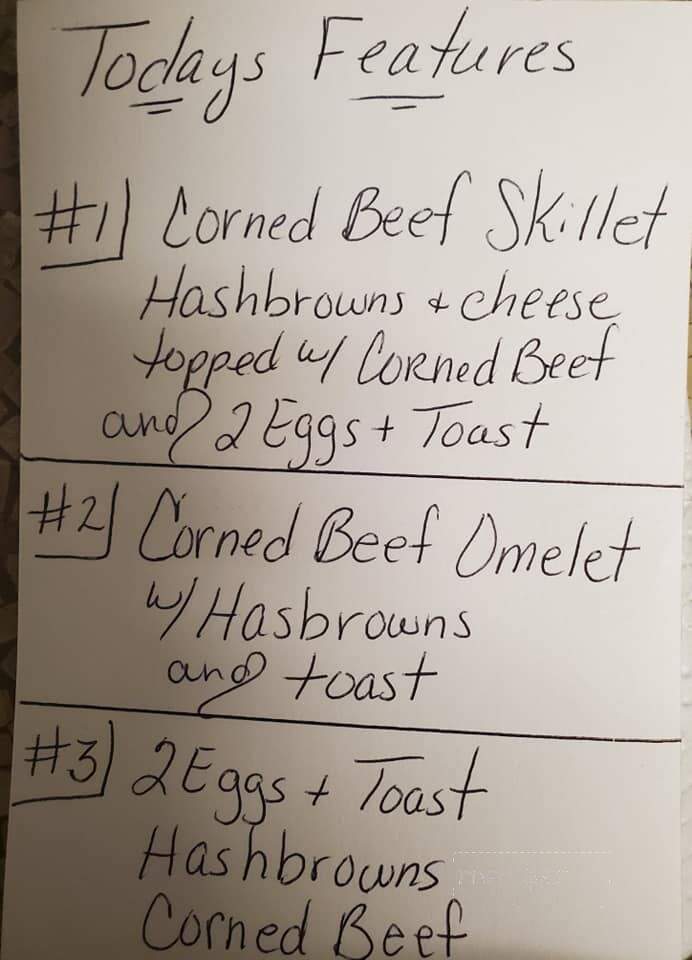 Todays Features
#1) Corned Beef Skillet
Hashbrowns & cheese
topped w/ Corned Beef
and 2 Eggs + Toast
#2) Corned Beef Omelet
w/ Hasbrowns
and toast
#3) 2 Eggs + Toast
Hashbrowns
Corned Beef